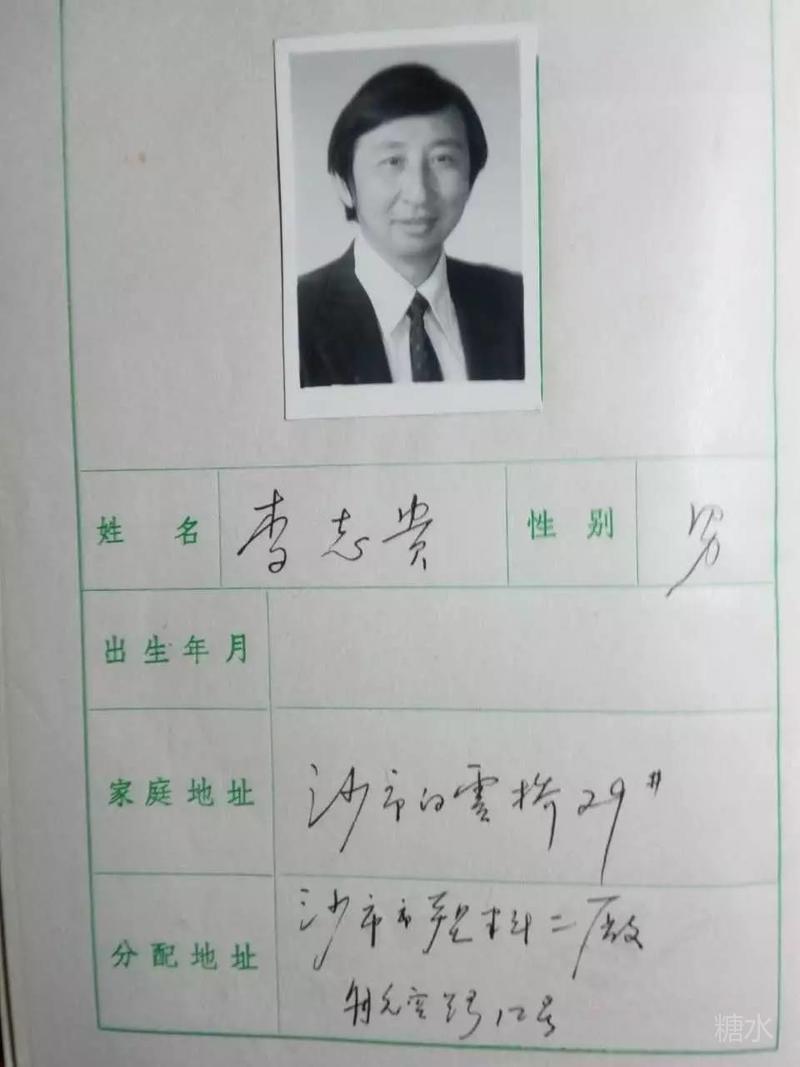 姓 名 李志贵 性 别 男
出生年月
家庭地址 沙市白雲桥29#
分配地址 沙市市塑料二厰
12号
糖水